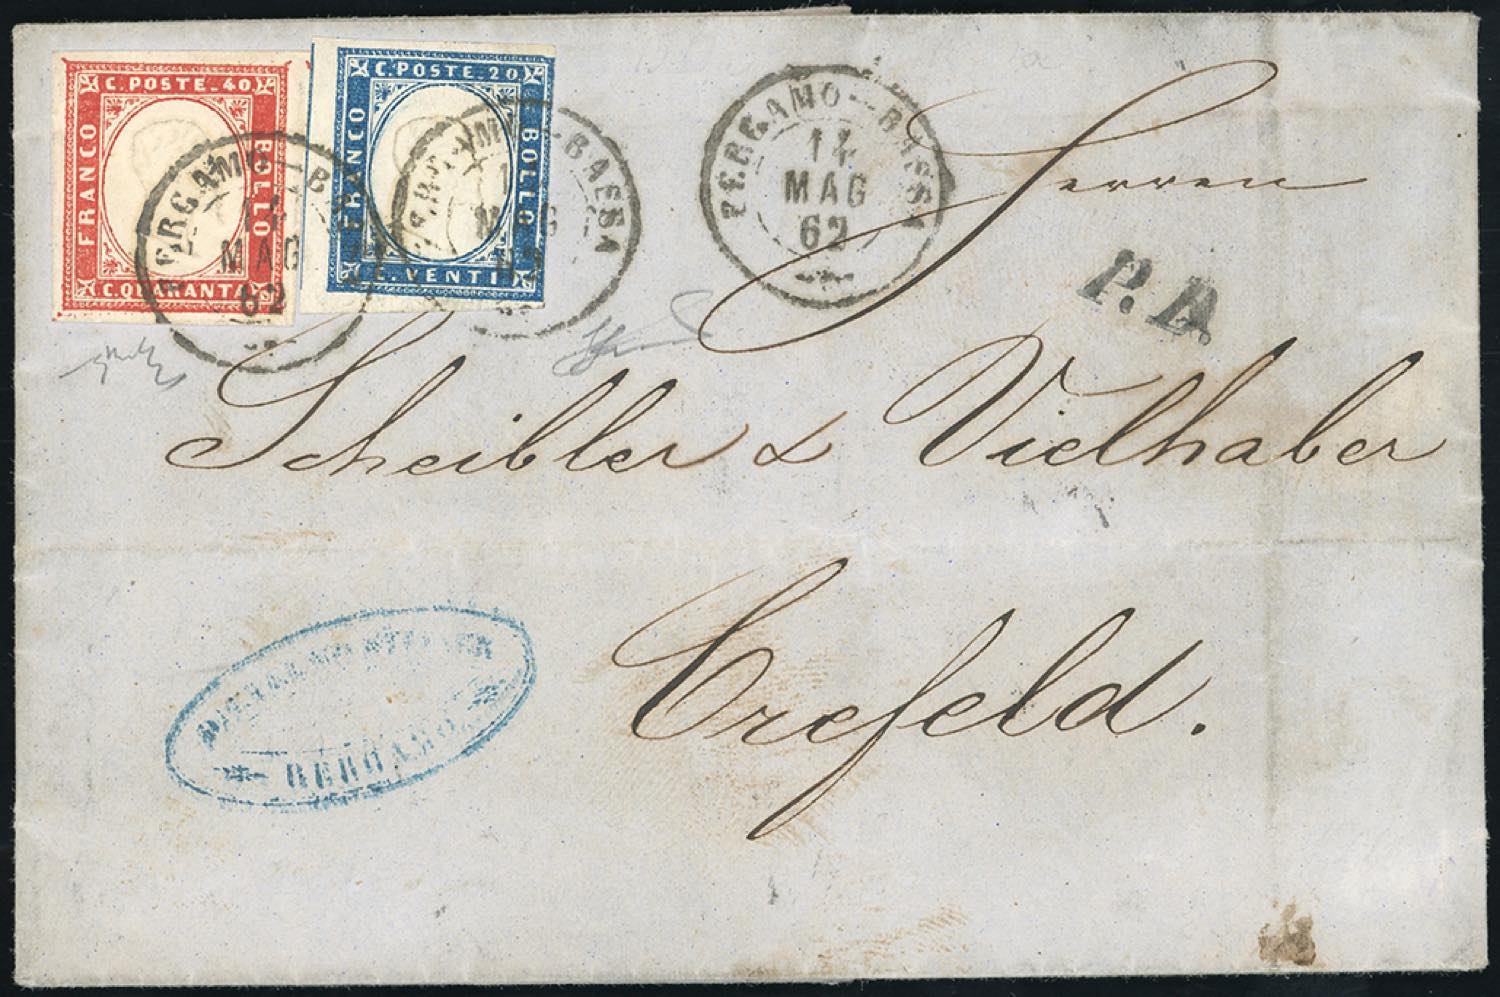 C. POSTE. 40.
FRANCO
BOLLO
C. QUARANTA
C. POSTE. 20
FRANCO
BOLLO
C. VENTI
BERGAMO - B
14
MAG
62
BERGAMO - BASSA
MAG
62
BERGAMO - BASSA
14
MAG
62
P.D.
Herren
Scheibler & Vielhaber
Crefeld.
BERGAMO